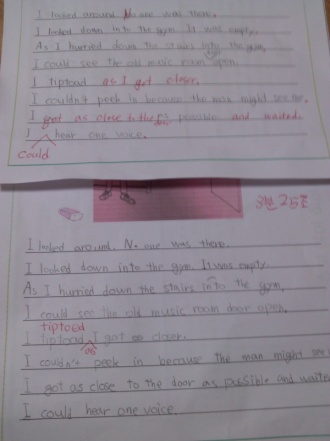 I looked around. No one was there.
I looked down into the gym. It was empty.
As I hurried down the stairs into the gym,
I could see the old music room open.
I tiptoed as I got closer.
I couldn't peek in because the man might see me.
I got as close to the possible and waited.
I hear one voice.
could
3번 25
I looked around. No one was there.
I looked down into the gym. It was empty.
As I hurried down the stairs into the gym,
I could see the old music room door open.
tiptoed
I tiptoad I got closer.
as
I couldn't peek in because the man might see
I got as close to the door as possible and waited
I could hear one voice.